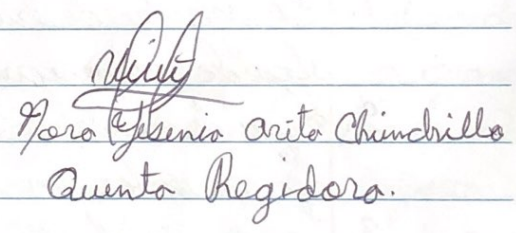 Nora Yesenia Arita Chinchilla
Quinta Regidora.